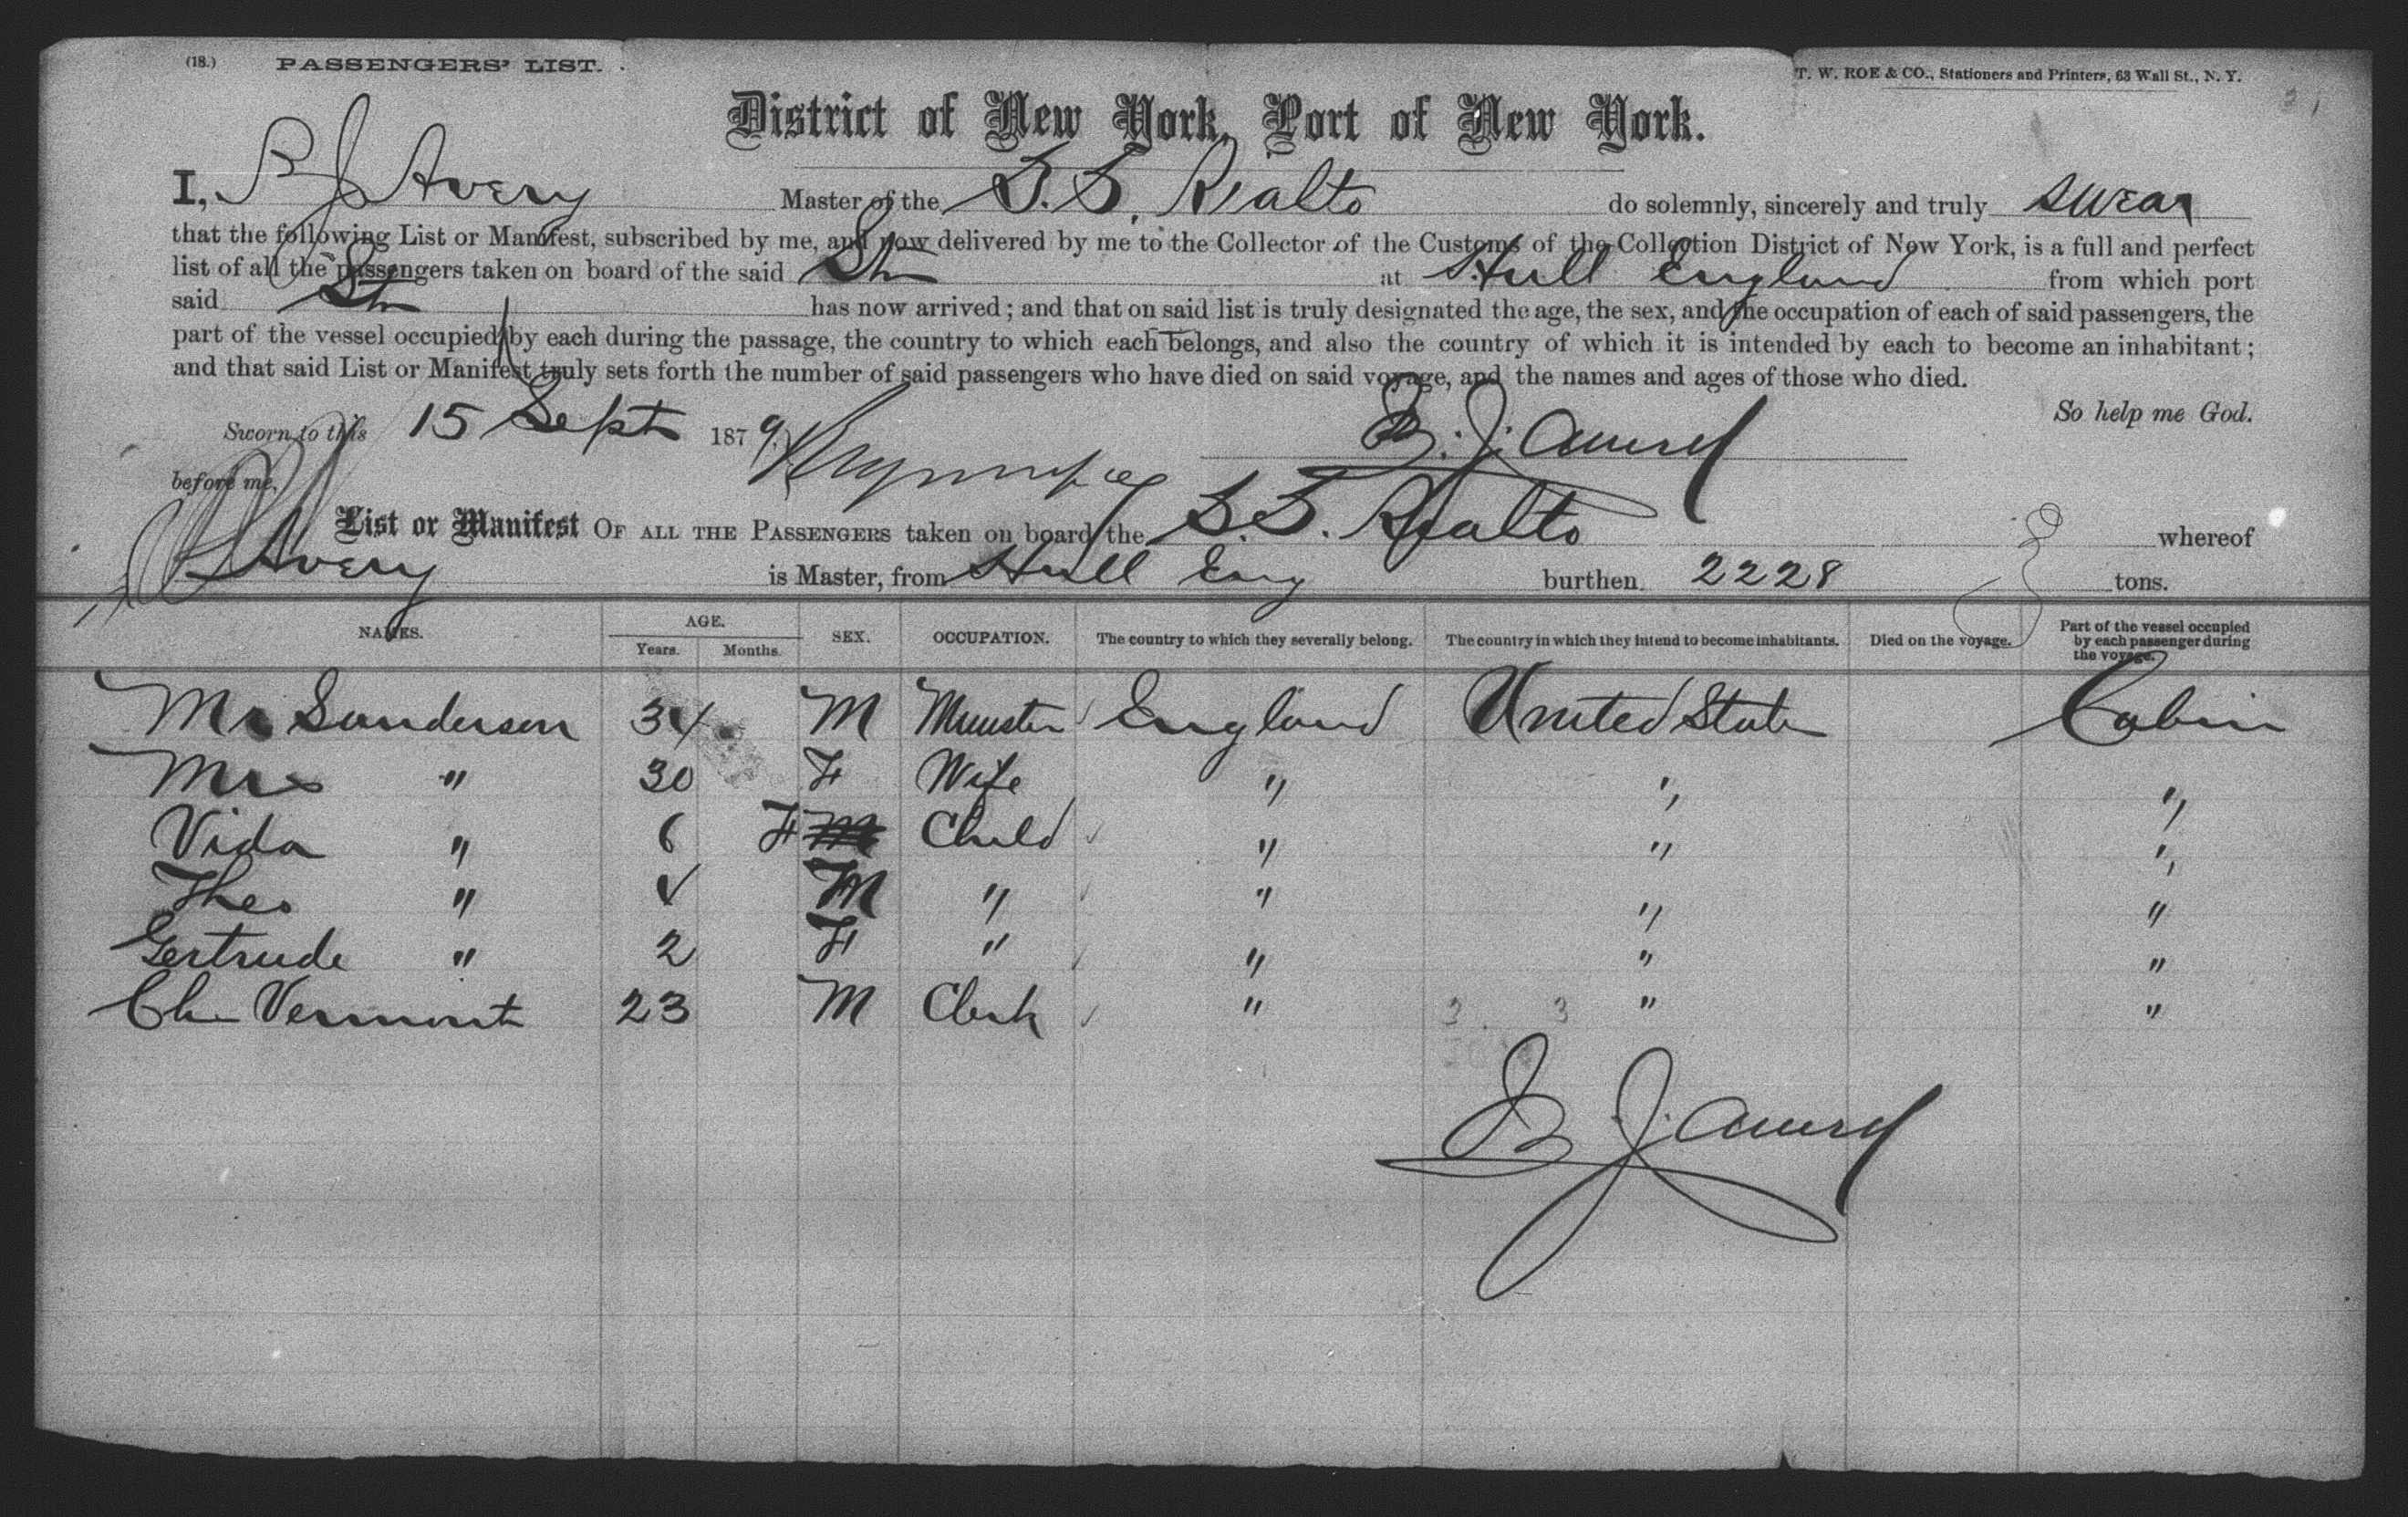 (18.) PASSENGERS' LIST. T. W. ROE & CO., Stationers and Printers, 63 Wall St., N. Y.
District of New York, Port of New York.
I, B J Avery Master of the S.S. Rialto do solemnly, sincerely and truly swear
that the following List or Manifest, subscribed by me, and now delivered by me to the Collector of the Customs of the Collection District of New York, is a full and perfect
list of all the passengers taken on board of the said Str at Hull England from which port
said Str has now arrived; and that on said list is truly designated the age, the sex, and the occupation of each of said passengers, the
part of the vessel occupied by each during the passage, the country to which each belongs, and also the country of which it is intended by each to become an inhabitant;
and that said List or Manifest truly sets forth the number of said passengers who have died on said voyage, and the names and ages of those who died.
So help me God.
Sworn to this 15 Sept 1879. B. J. Avery
before me,
List or Manifest OF ALL THE PASSENGERS taken on board the S.S. Rialto whereof
Avery is Master, from Hull Eng burthen 2228 tons.
NAMES. AGE. Years. Months. SEX. OCCUPATION. The country to which they severally belong. The country in which they intend to become inhabitants. Died on the voyage. Part of the vessel occupied by each passenger during the voyage.
Mr Sanderson 34 M Minister England United State Cabin
Mrs " 30 F Wife " " "
Vida " 6 F Child " " "
Theo " 4 M " " " "
Gertrude " 2 F " " " "
Chs Vermont 23 M Clerk " " "
3 3
B J Avery